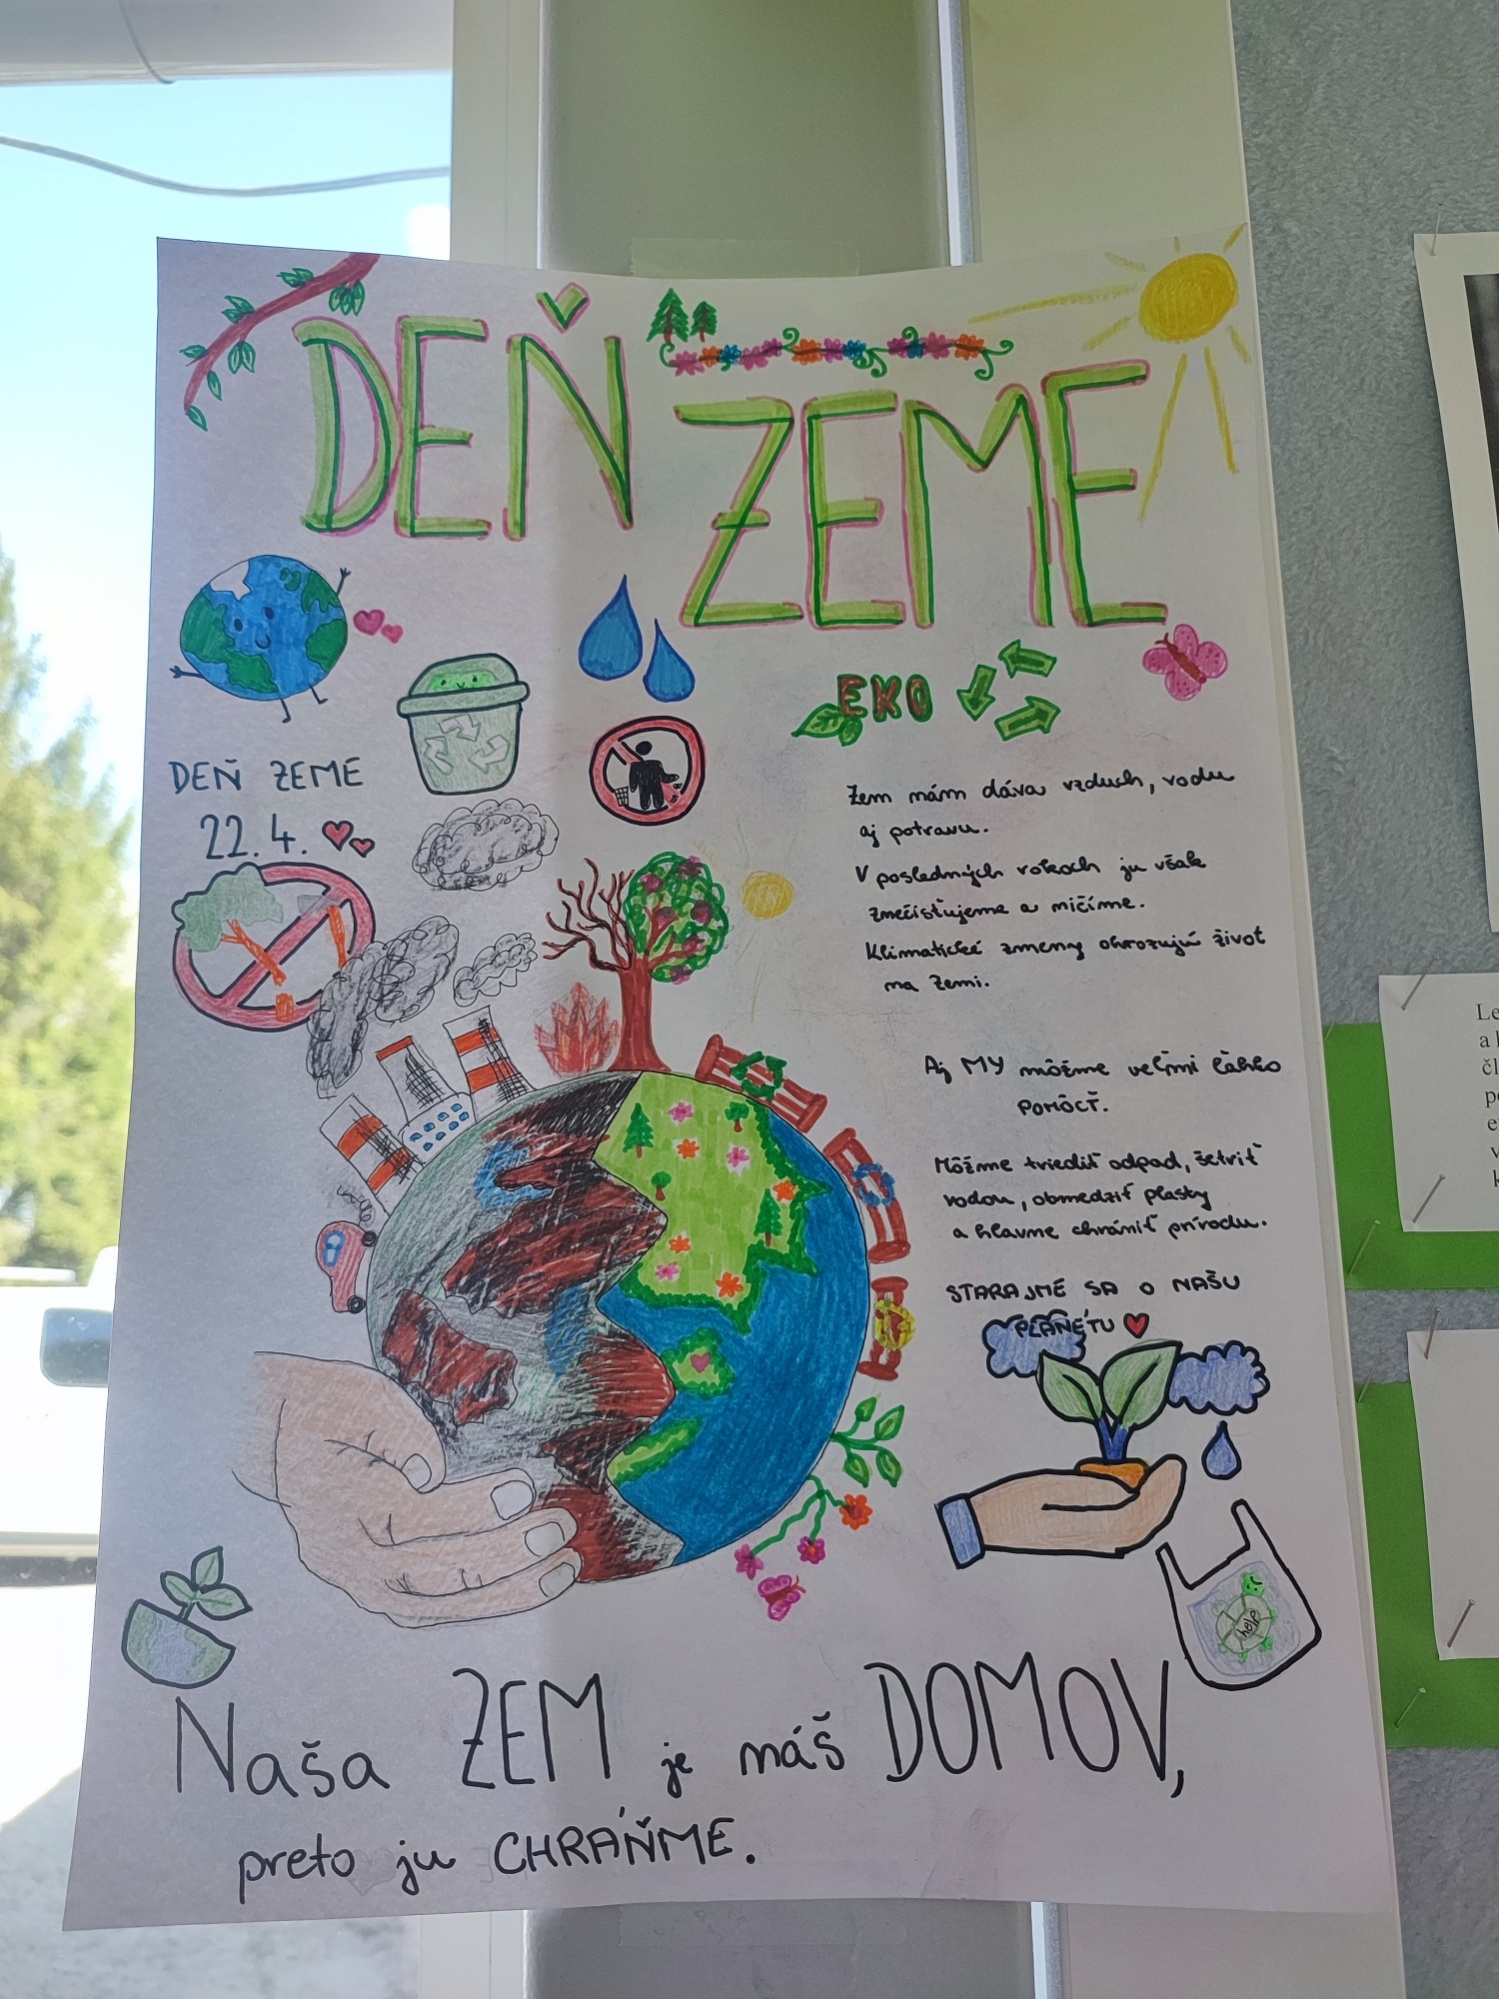 DEŇ
ZEME
EKO
DEŇ ZEME
22.4.
Zem nám dáva vzduch, vodu
aj potravu.
V posledných rokoch ju však
znečisťujeme a ničíme.
Klimatické zmeny ohrozujú život
na Zemi.
Aj MY môžme veľmi ľahko
POMÔCŤ.
Môžme triediť odpad, šetriť
vodou, obmedziť plasty
a hlavne chrániť prírodu.
STARAJME SA O NAŠU
PLANÉTU
help
Naša ZEM je náš DOMOV,
preto ju CHRÁŇME.
Le
a
čl
p
e
v
k